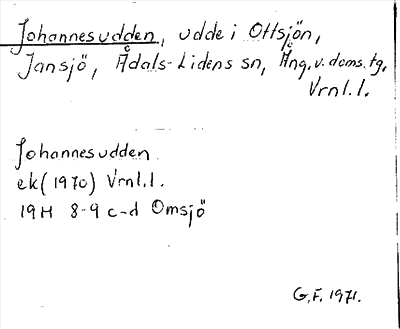 Johannesudden, udde i Ottsjön,
Jansjö, Ådals-Lidens sn, Ång. v. doms. tg,
Vrnl.l.
Johannesudden
ek (1970) Vrnl.l.
19H 8-9 c-d Omsjö
G.F. 1971.